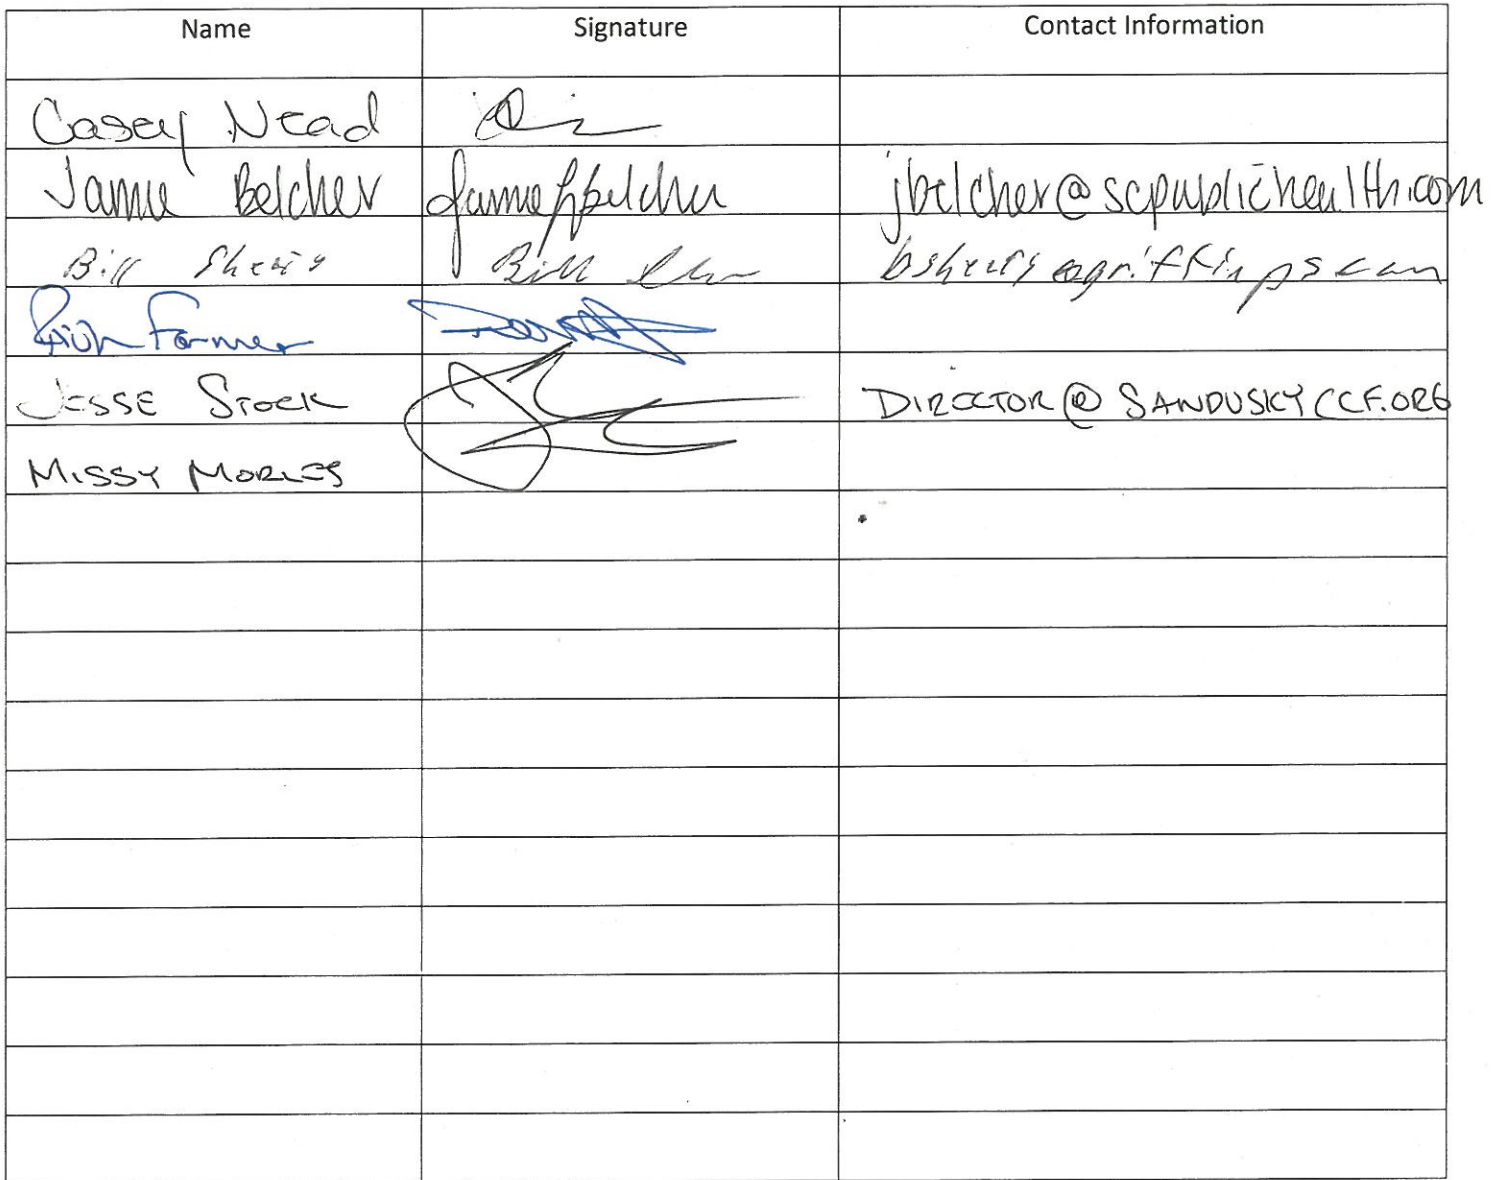 Name Signature Contact Information
Casey Nead
Jamie Belcher Jamie Belcher jbelcher@scpublichealth.com
Bill Bill
Farmer
JESSE STOCK DIRECTOR@SANDUSKYCCF.ORG
MISSY MORLES